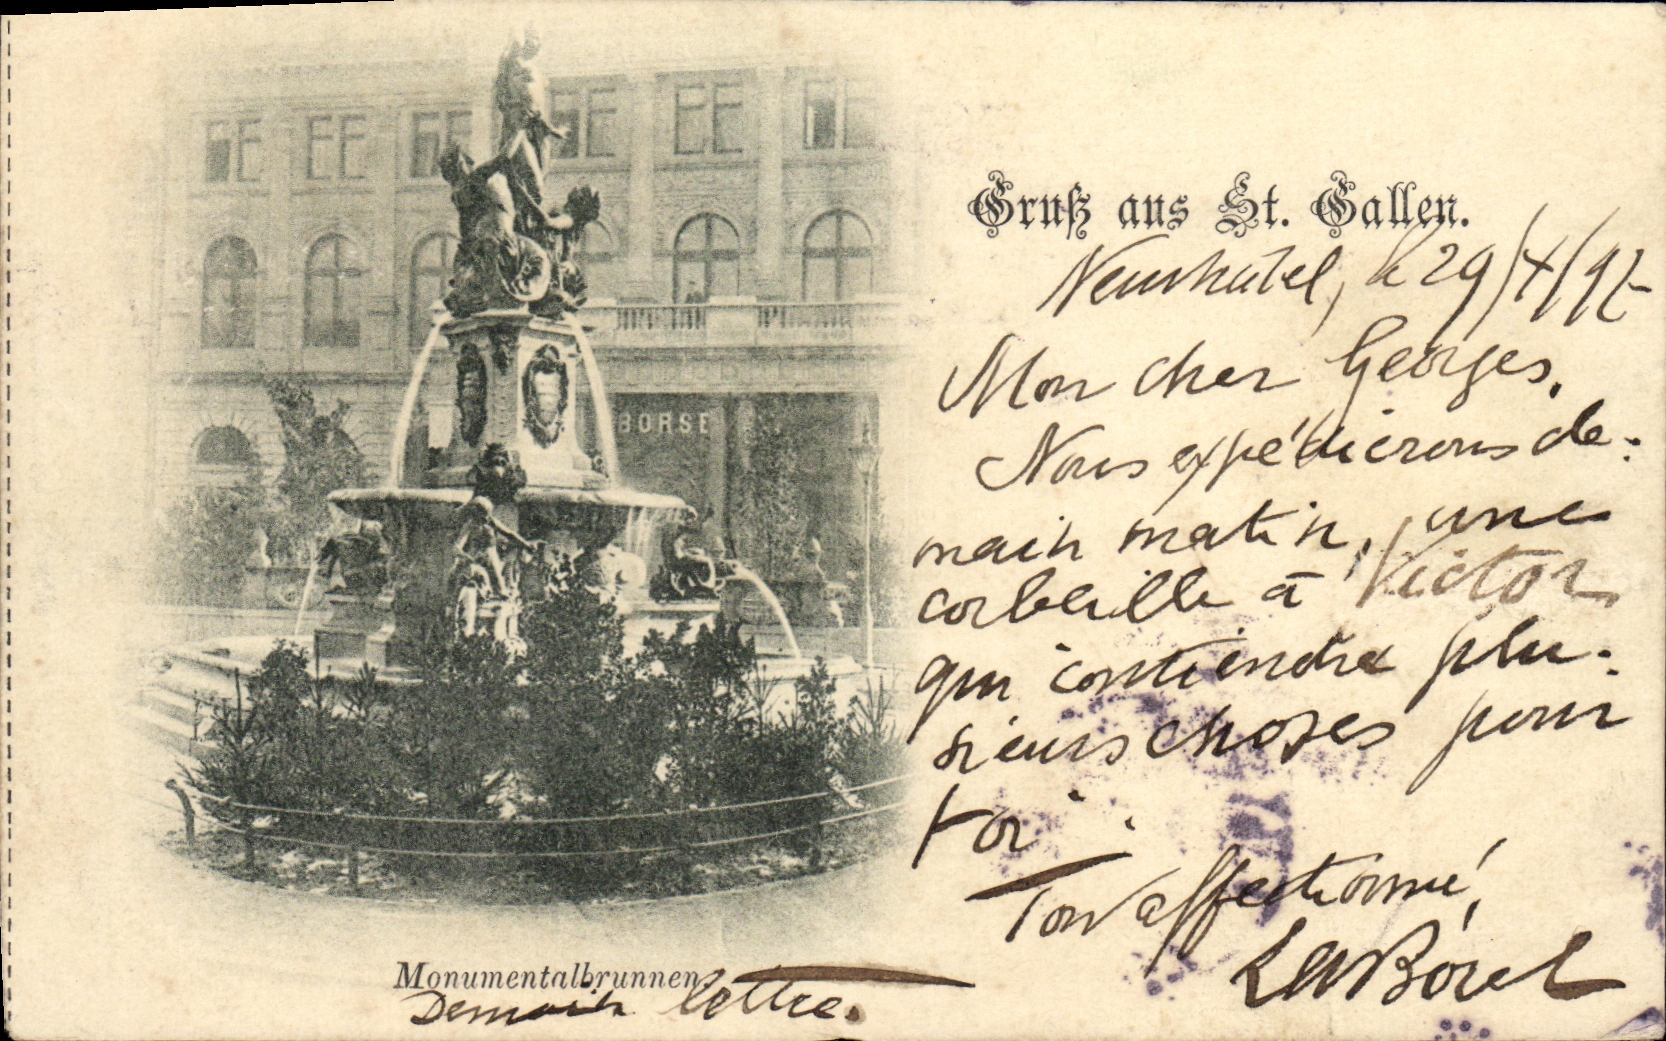 BÖRSE
Gruß aus St. Gallen.
Neuchâtel, le 29/4/97
Mon cher Georges,
Nous expédierons de-
main matin, une
corbeille à Victor
qui contiendra plu-
sieurs choses pour
toi.
Ton affectionné,
Borel
Monumentalbrunnen
Demain lettre.